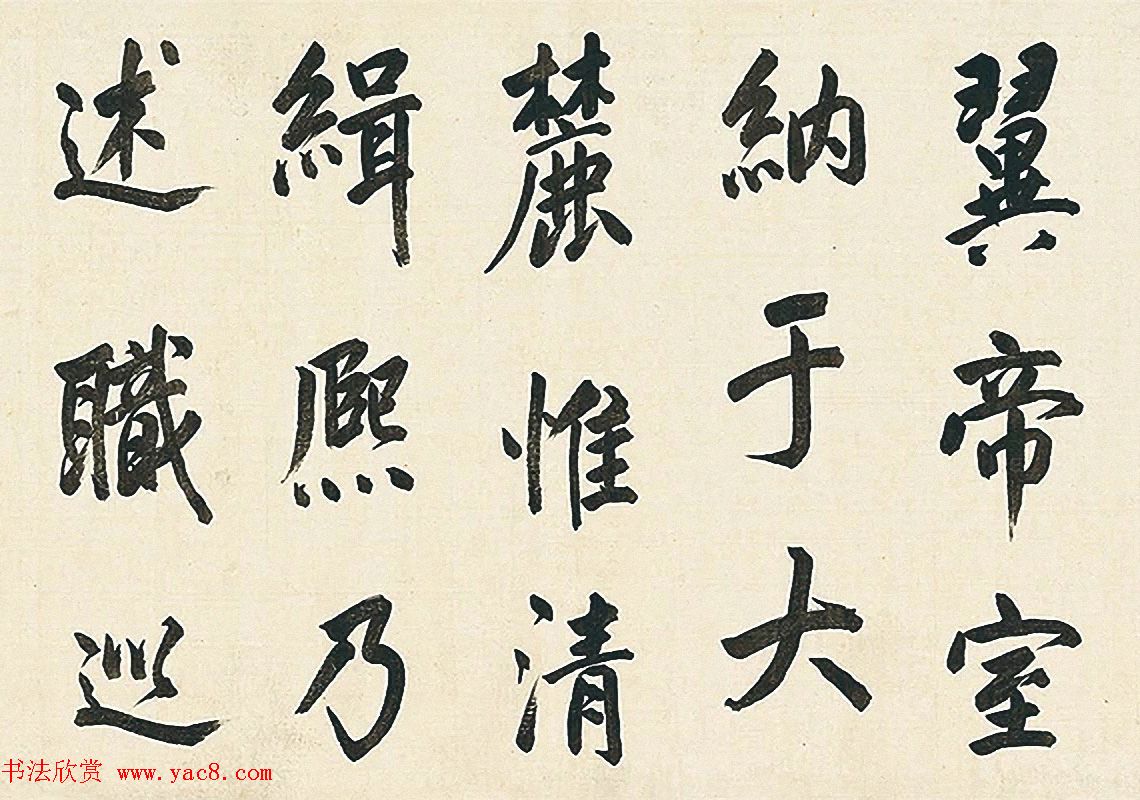 翼帝室
納于大
麓惟清
緝熙乃
述職巡
书法欣赏 www.yac8.com